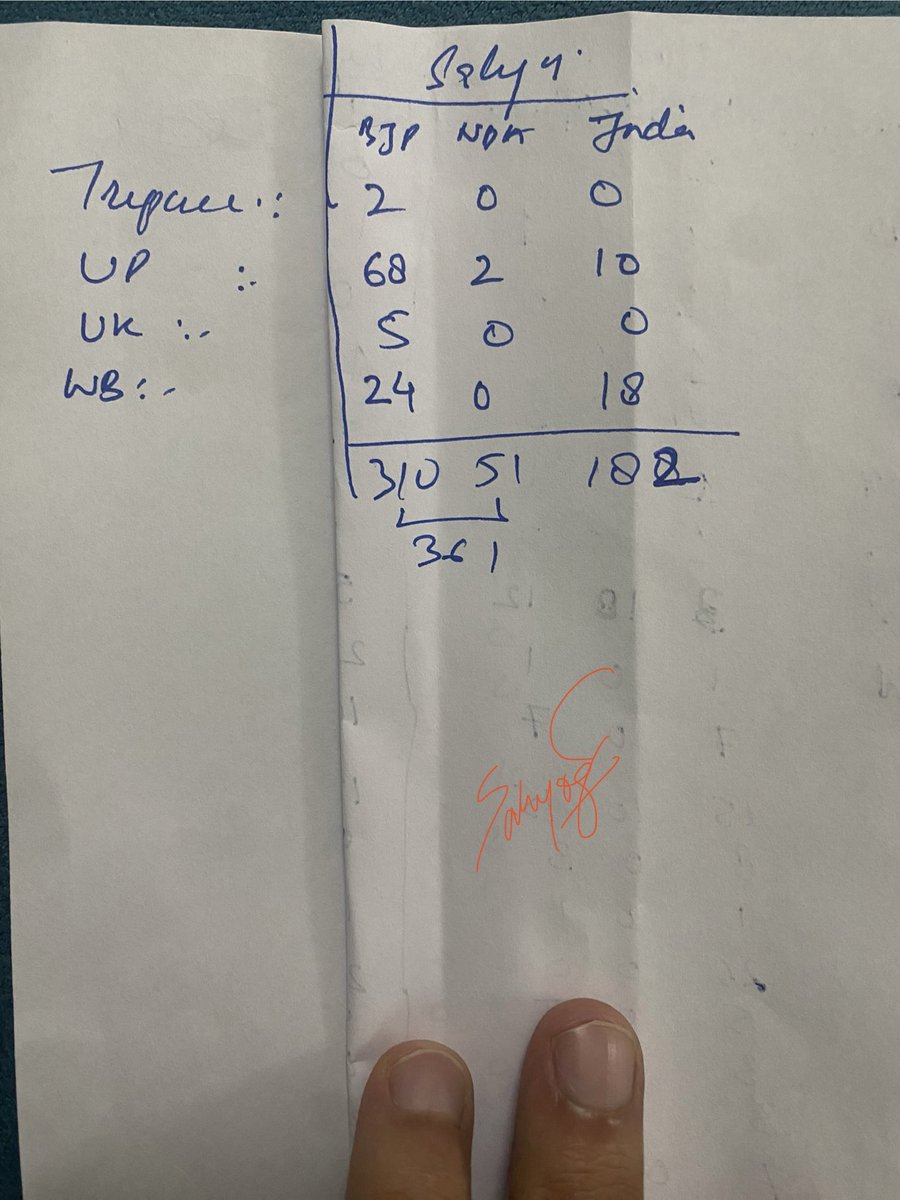 Sahyog
BJP NDA India
Tripura :- 2 0 0
UP :- 68 2 10
UK :- 5 0 0
WB :- 24 0 18
310 51 182
361
Sahyog